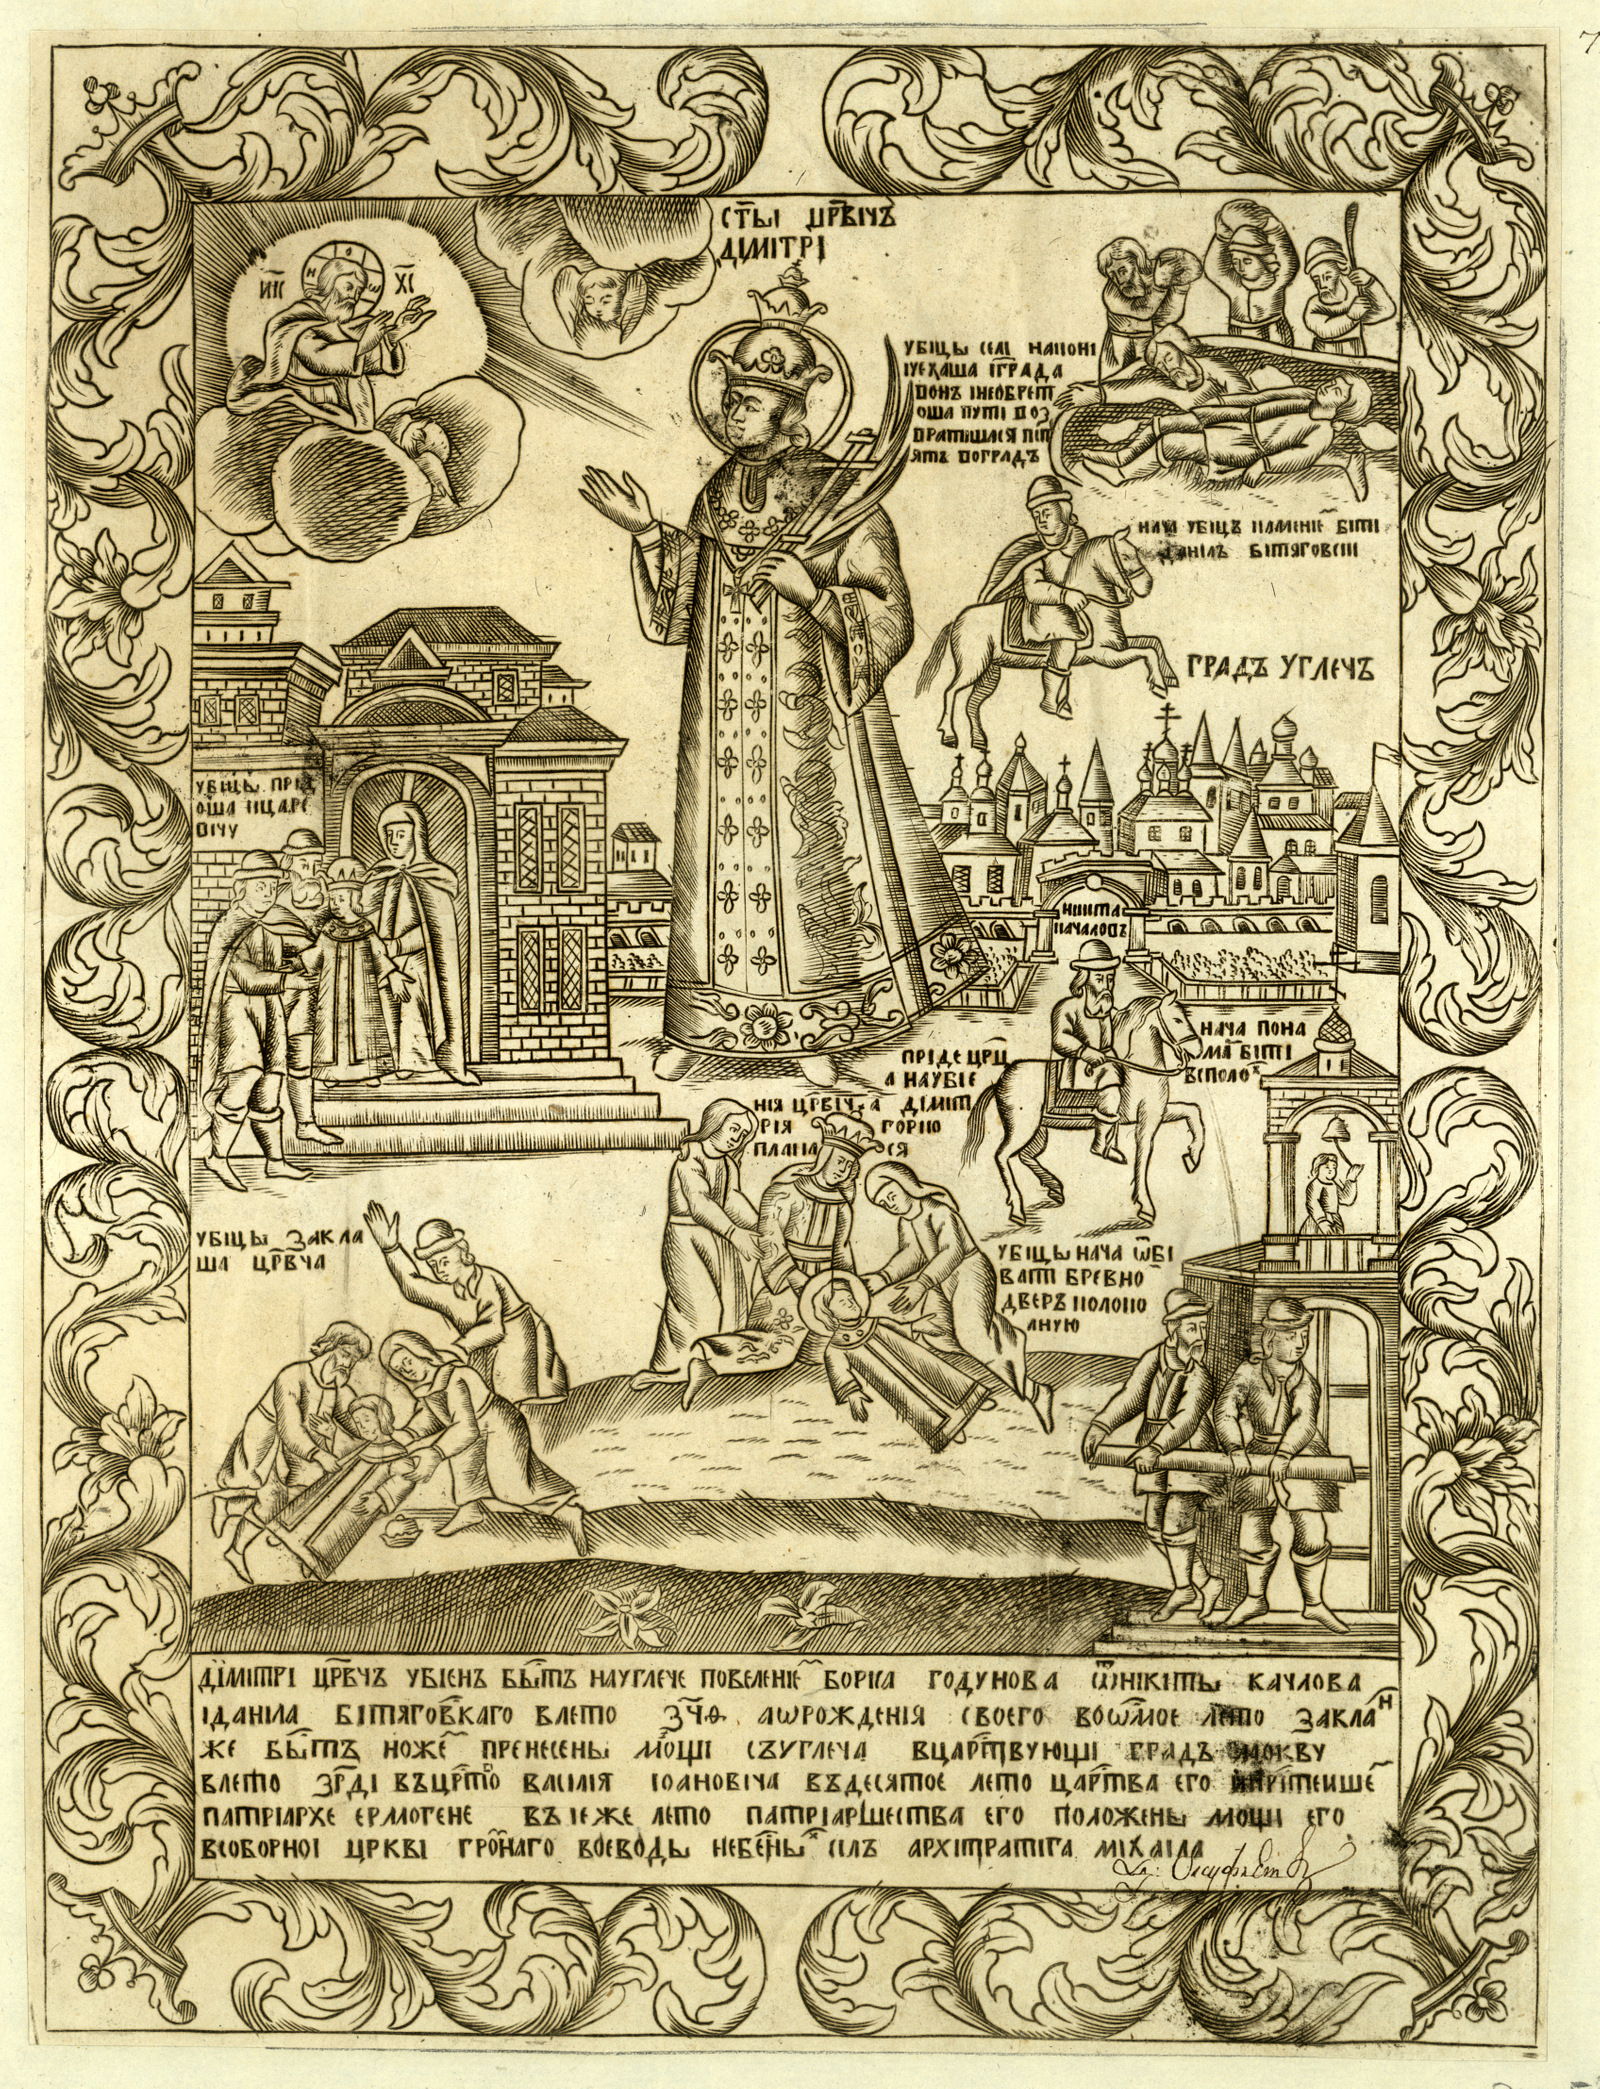 СТ҃Ы ЦР҃ВІЧЪ
ДІМІТРІ
ИИ҃С ХС҃
УБІЦЫ СЕЛІ НАКОНІ
ІУЕХАША ІГ҃РАДА
ВОНЪ ІНЕОБРЕТ
ОША ПУТІ ВОЗ
ВРАТІШАСЯ
ЯТЬ ВОГРАДЪ
НАЧА УБІЦЪ КАМЕНІЕ БІТІ
ДАНІЛЪ БІТЯГОВСКІ
ГРАДЪ УГЛЕЧЪ
УБІЦЫ ПРІД
ОША КЦАРЕ
ВІЧУ
НІКІТА
КАЧАЛОВЪ
НАЧА ПОНА
МА БІТІ
ВСПОЛО
ПРІДЕ ЦРЦ
А НАУБІЕ
НІЯ ЦРВІЧА ДІМІТ
РІЯ ГОРКО
ПЛАКА СЯ
УБІЦЫ ЗАКЛА
ША ЦР҃ВЧА
УБІЦЫ НАЧА ѾБІ
ВАТІ БРЕВНО
ДВЕРЪ КОЛОКО
ЛНУЮ
ДІМІТРІ ЦР҃ВЧЪ УБІЕНЪ БЫ҃ТЪ НАУГЛЕЧЕ ПОВЕЛЕНІЕ БОРІСА ГОДУНОВА ѾНІКІТЫ КАЧЛОВА
ІДАНІЛА БІТЯГОВ҃КАГО ВЛЕТО ЗЧ҃Ѳ АѠРОЖДЕНІЯ СВОЕГО ВОѠ҃МОЕ ЛЕТО ЗАКЛАН
ЖЕ БЫ҃ТЪ НОЖЕ ПРЕНЕСЕНЫ МО҃ЩІ СЪУГЛЕЧА ВЦАР҃ТВУЮЩІ ГРАДЪ МОКВУ
ВЛЕТО ЗР҃ДІ ВЪЦР҃ТВО ВАСІЛІЯ ІОАНОВІЧА ВЪДЕСЯТОЕ ЛЕТО ЦАР҃ТВА ЕГО
ПАТРІАРХЕ ЕРМОГЕНЕ ВЪ ІЕЖЕ ЛЕТО ПАТРІАРШЕСТВА ЕГО ПОЛОЖЕНЫ МОЩІ ЕГО
ВСОБОРНОІ ЦРКВІ ГРО҃НАГО ВОЕВОДЫ НЕБЕ҃НЫ СІЛЪ АРХІТРАТІГА МІХАІЛА